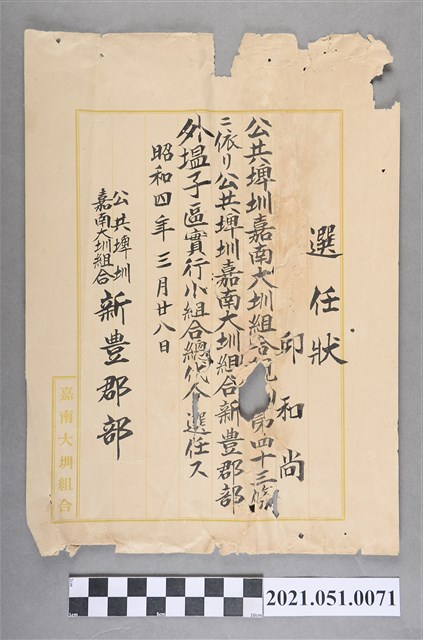 選任狀
邱和尚
公共埤圳嘉南大圳組合規 第四十三條
ニ依リ公共埤圳嘉南大圳組合新豊郡部
外塭子區實行小組合總代 選任ス
昭和四年三月廿八日
公共埤圳
嘉南大圳組合 新豊郡部
嘉南大圳組合
2021.051.0071